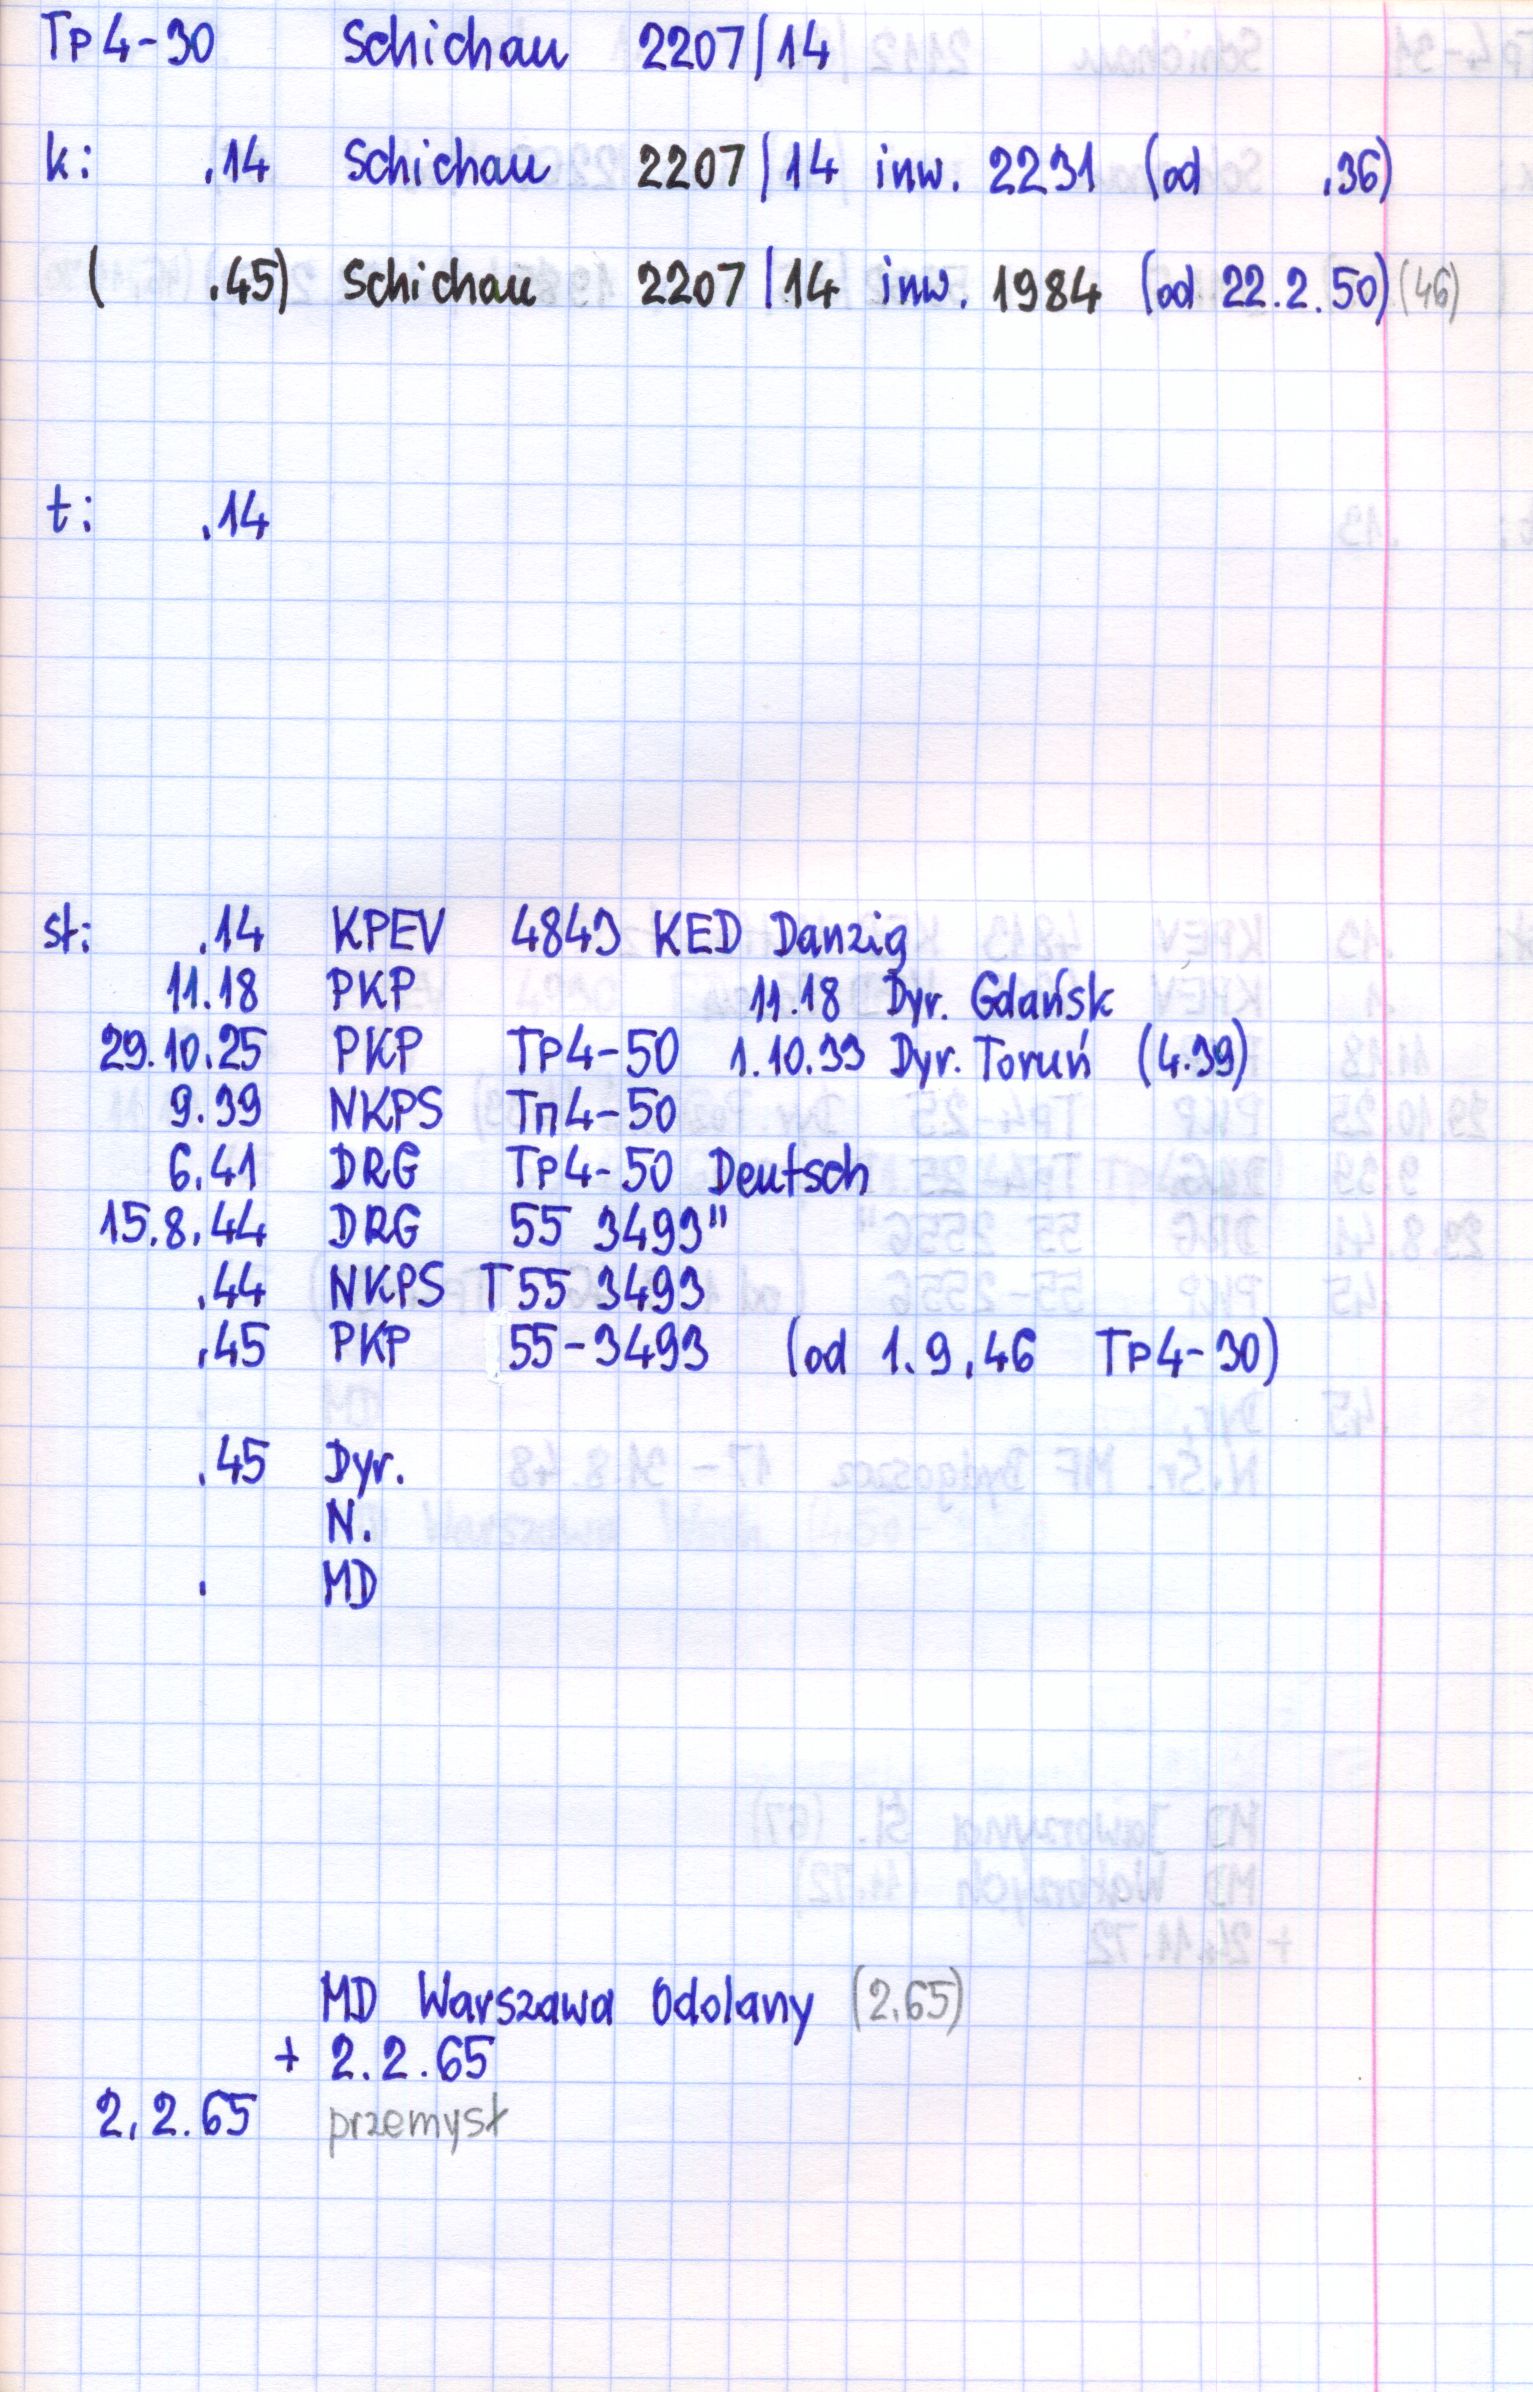 Tp4-30 Schichau 2207/14
k: .14 Schichau 2207/14 inw. 2231 (od .36)
( .45) Schichau 2207/14 inw. 1984 (od 22.2.50) (46)
t: .14
st: .14 KPEV 4843 KED Danzig
11.18 PKP 11.18 Dyr. Gdańsk
29.10.25 PKP Tp4-50 1.10.33 Dyr. Toruń (4.39)
9.39 NKPS Тп4-50
6.41 DRG Tp4-50 Deutsch
15.8.44 DRG 55 3493"
.44 NKPS T55 3493
.45 PKP 55-3493 (od 1.9.46 Tp4-30)
.45 Dyr.
N.
. MD
MD Warszawa Odolany (2.65)
+ 2.2.65
2.2.65 przemysł